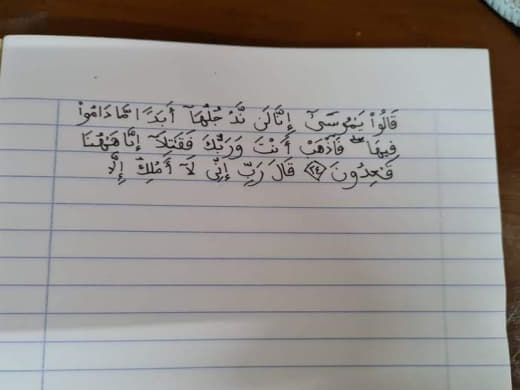 قَالُوا۟ يَـٰمُوسَىٰٓ إِنَّا لَن نَّدْخُلَهَآ أَبَدًا مَّا دَامُوا۟
فِيهَا ۖ فَٱذْهَبْ أَنتَ وَرَبُّكَ فَقَـٰتِلَآ إِنَّا هَـٰهُنَا
قَـٰعِدُونَ ٢٤ قَالَ رَبِّ إِنِّى لَآ أَمْلِكُ إِلَّا